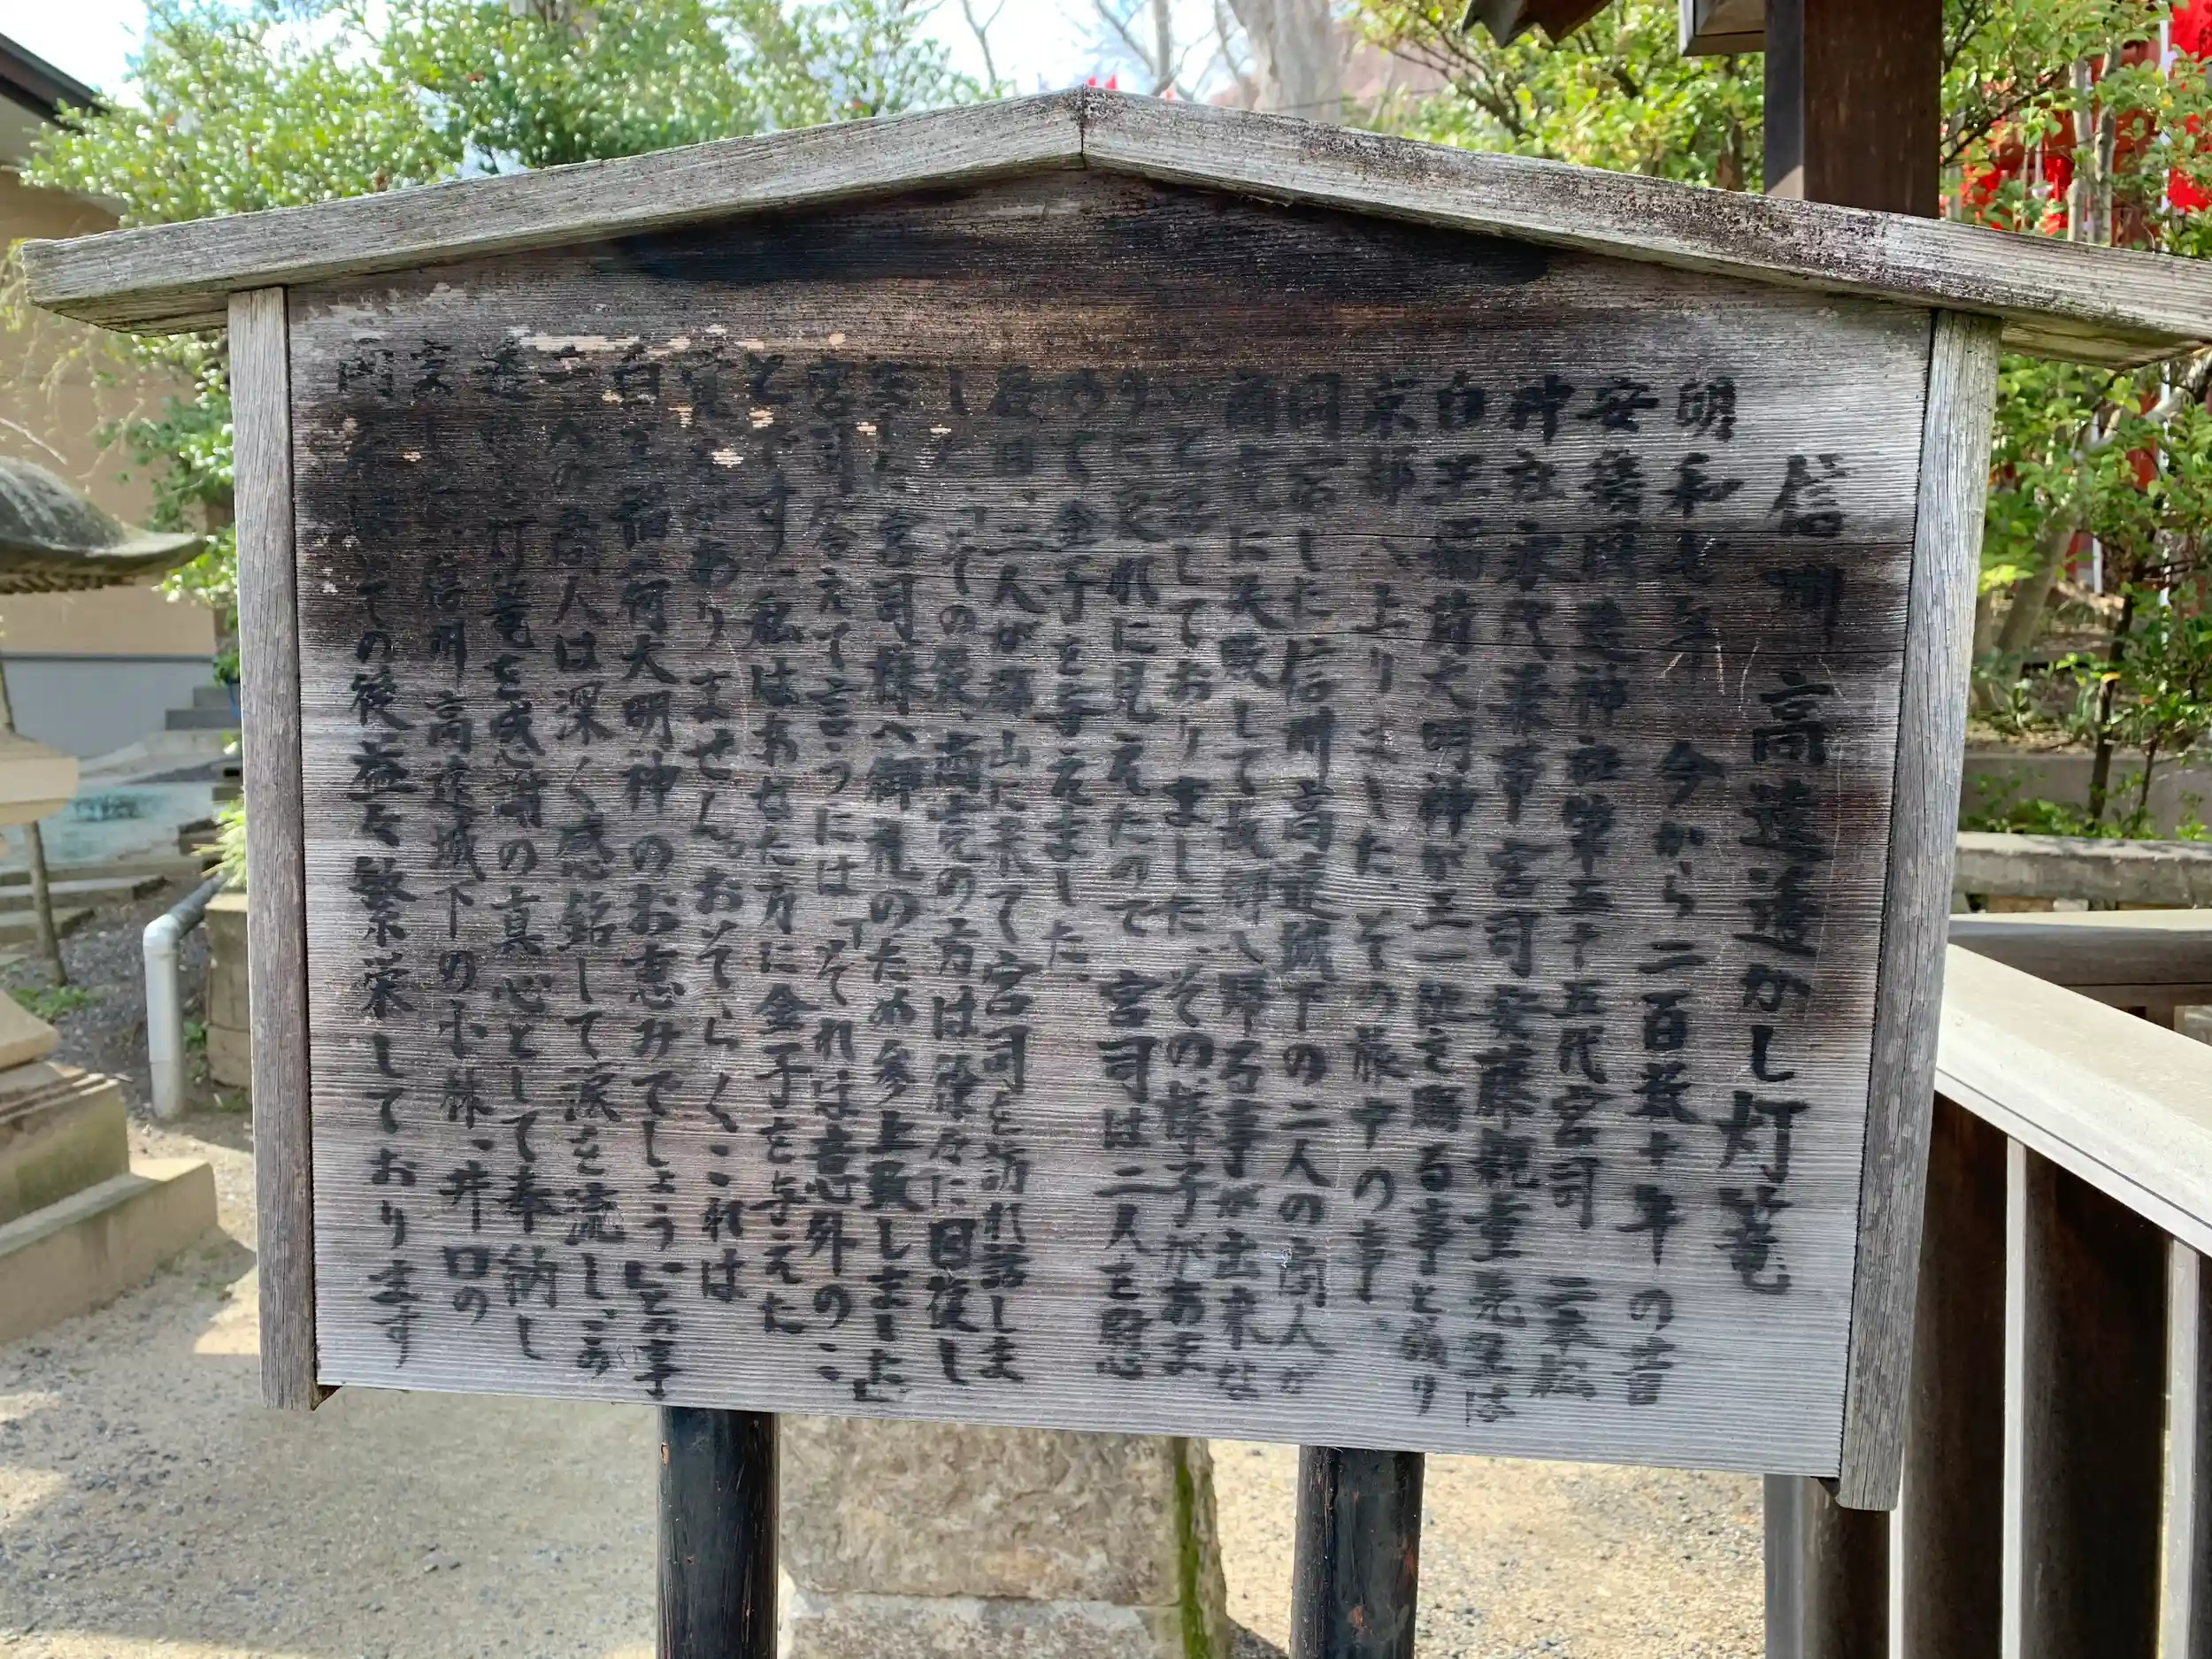 信州 高遠透かし灯篭
明和七年 今から二百数十年の昔
安達国造神社第三十五代宮司 二本松
神社 宮司安藤親重 は
白王稲荷大明神が正一位を賜る事と成り
京都へ上りました。その旅中の事、
同宿した信州高遠城下の二人の商人が
商 に失敗して故郷へ帰る事が出来な
しておりました。その様子があま
りに に見えたので 宮司は二人を慰
めて金子を与えました。
後日、二人が福山に来て宮司を訪れ話しま
した。「その後、商売の方は順々に回復し
宮司様へ御礼のため参上致しました」
宮司答えて言うには「それは意外のこ
とです。私はあなた方に金子を与えた
覚えがありません。おそらくこれは
白王稲荷大明神のお恵みでしょう」と 事
二人の商人は深く感銘して涙を流し、高
遠 灯篭を感謝の真心として奉納し
信州高遠城下の小林、井口の
両 その後益々繁栄しております